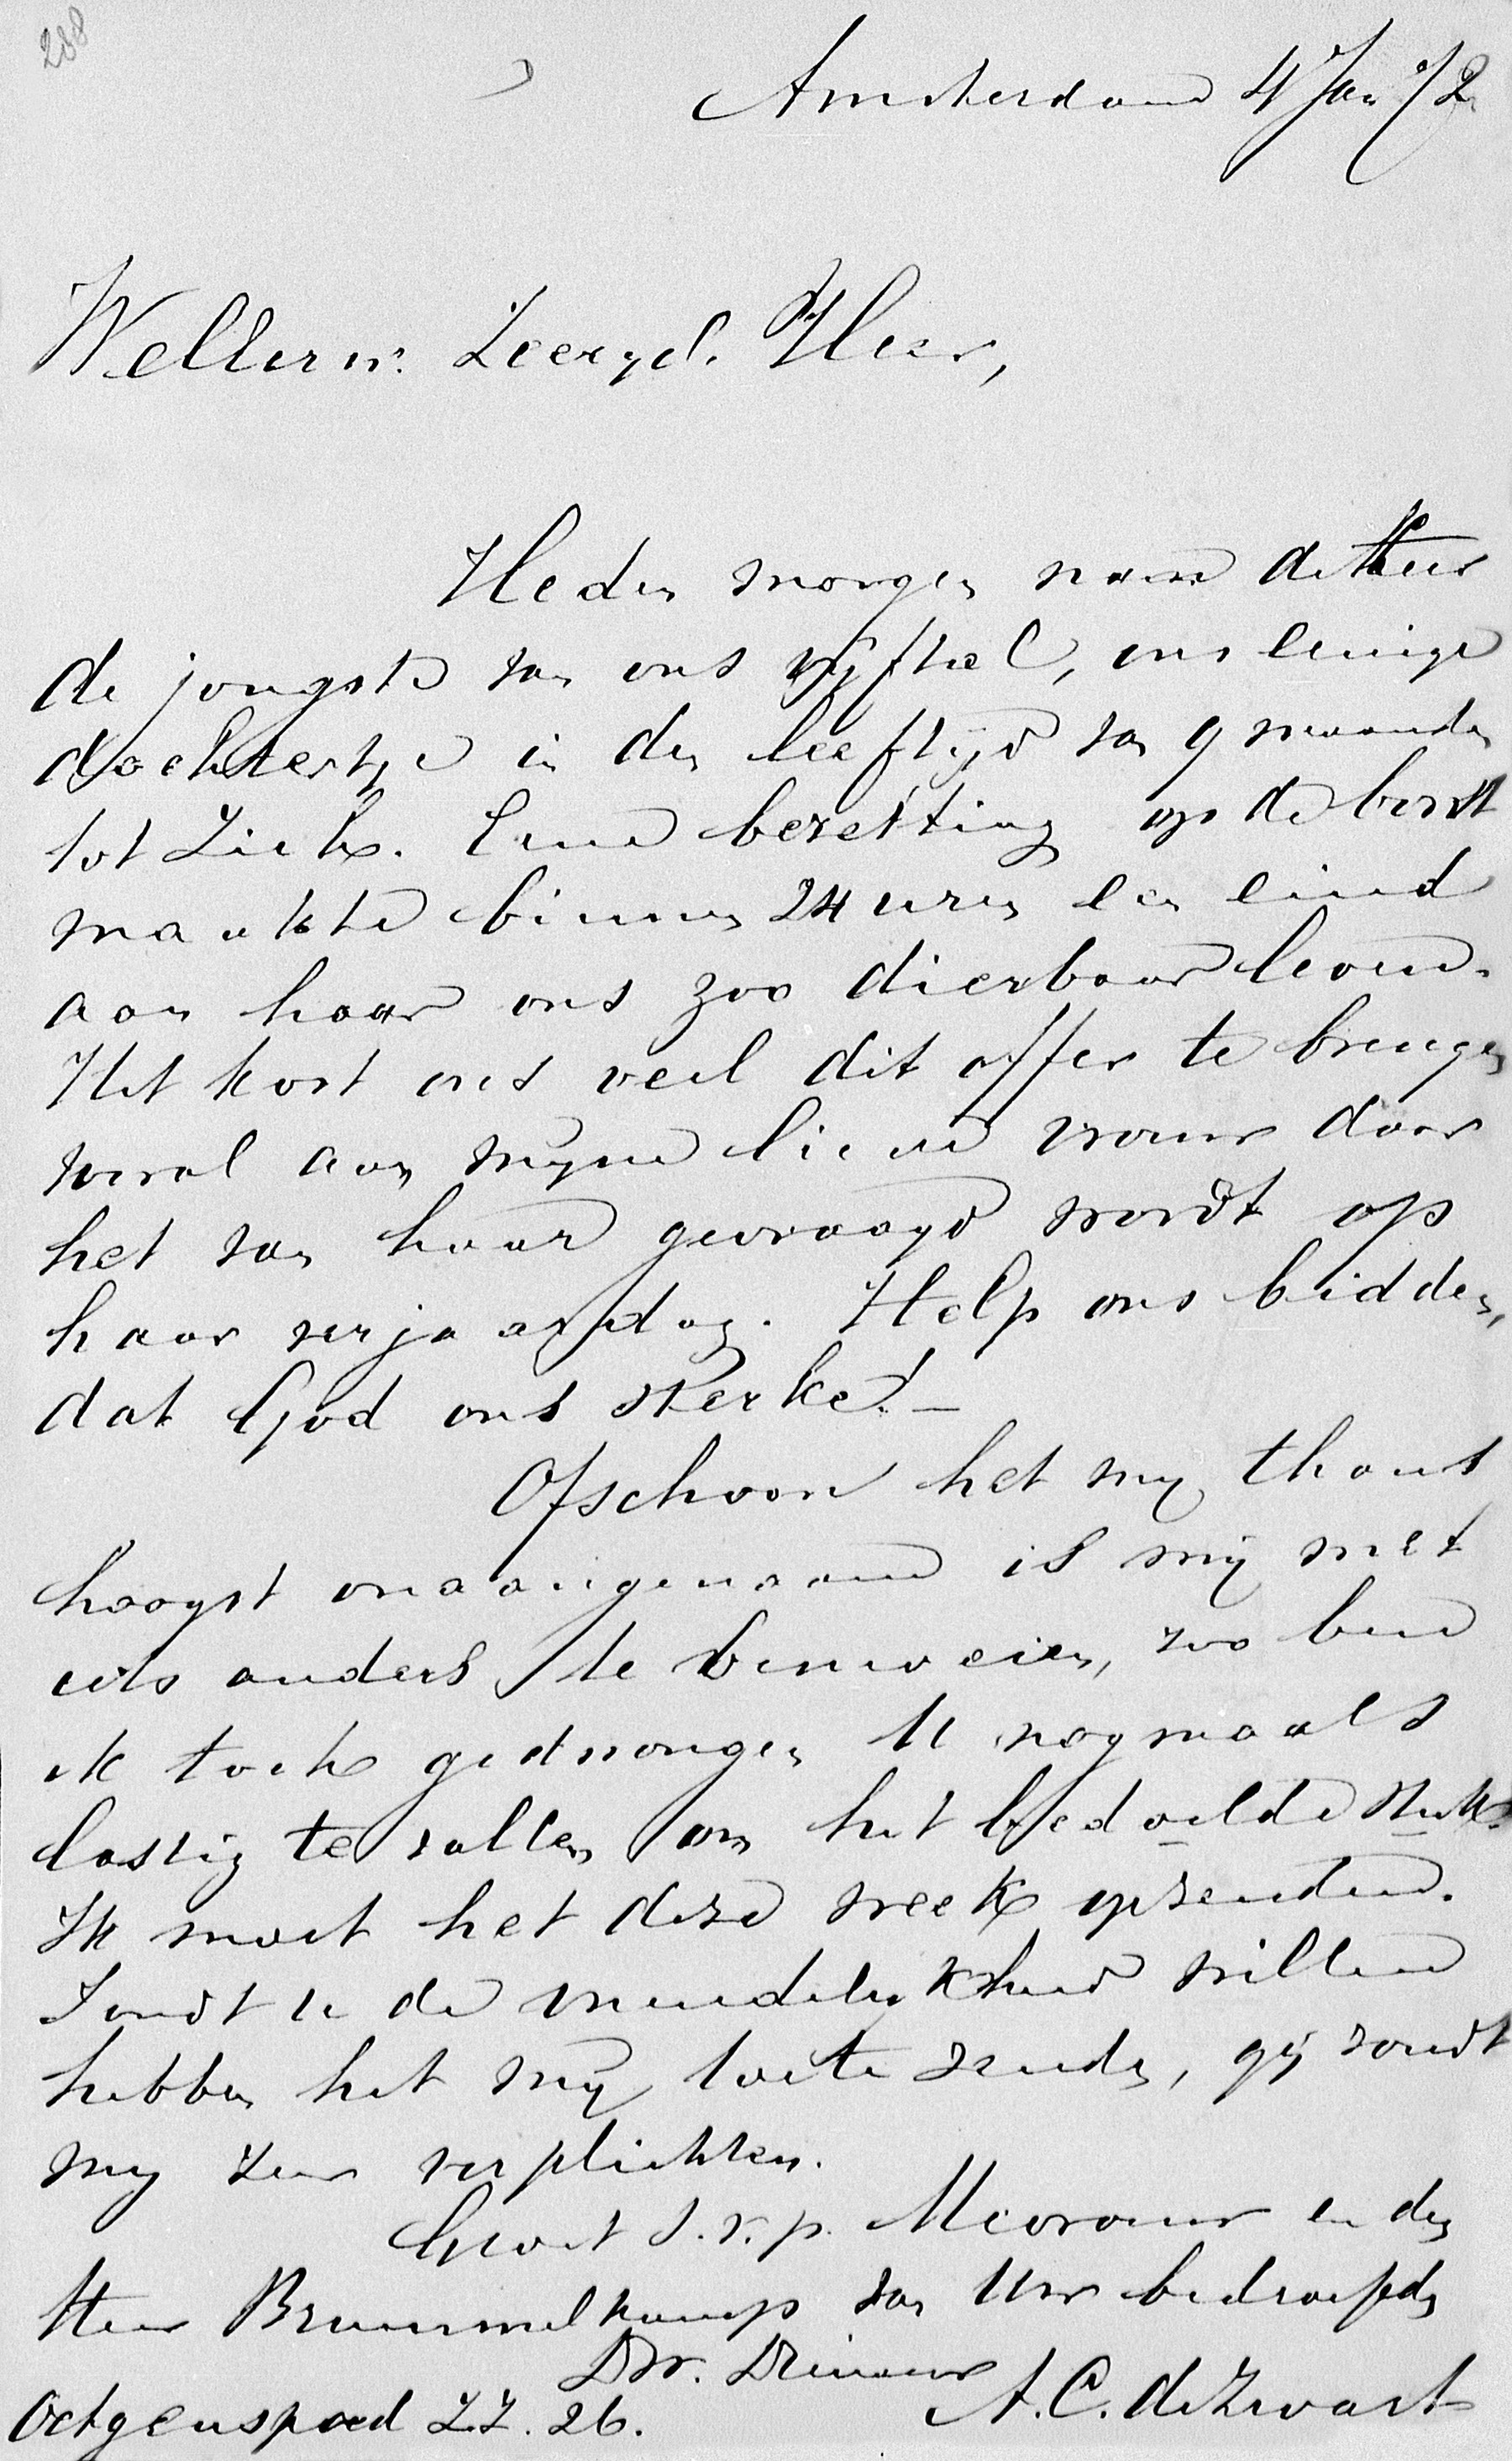 288
Amsterdam 4 Jan /72
WelEerw. Zeergel. Heer,
Heden morgen nam de Heer
de jongste van ons vijftal, ons eenige
dochtertje in den leeftijd van 9 maanden
tot Zich. Eene bezetting op de borst
maakte binnen 24 uren een eind
aan haar ons zoo dierbaar leven.
Het kost ons veel dit offer te brengen
vooral aan mijne lieve vrouw daar
het van haar gevraagd wordt op
haar verjaardag. Help ons bidden,
dat God ons sterke! –
Ofschoon het mij thans
hoogst onaangenaam is mij met
iets anders te bemoeien, zoo ben
ik toch gedwongen U nogmaals
lastig te vallen om het bedoelde stuk.
Ik moet het deze week opzenden.
Zoudt u de vriendelijkheid willen
hebben het mij toe te zenden, gij zoudt
mij zeer verplichten.
Groet s.v.p. Mevrouw en den
Heer Brummelkamp van Uw bedroefden
Dw. Dienaar
A. C. de Zwart
Oetgenspad ZZ. 26.